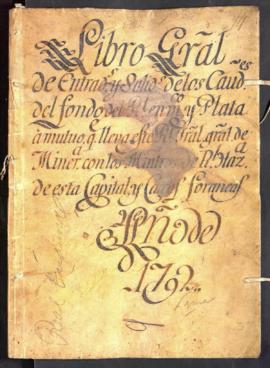 Libro Gr̃al
de Entrad.s y Salid.s de los Caud.es
del fondo del y Plata
à mutuo, q.e lleva este R.l Tr̃āl gr̃al de
Miner.a con los Mntros de R.l Haz.a
de esta Capital, y Caxas foraneas
Año de
1792
Lima
9